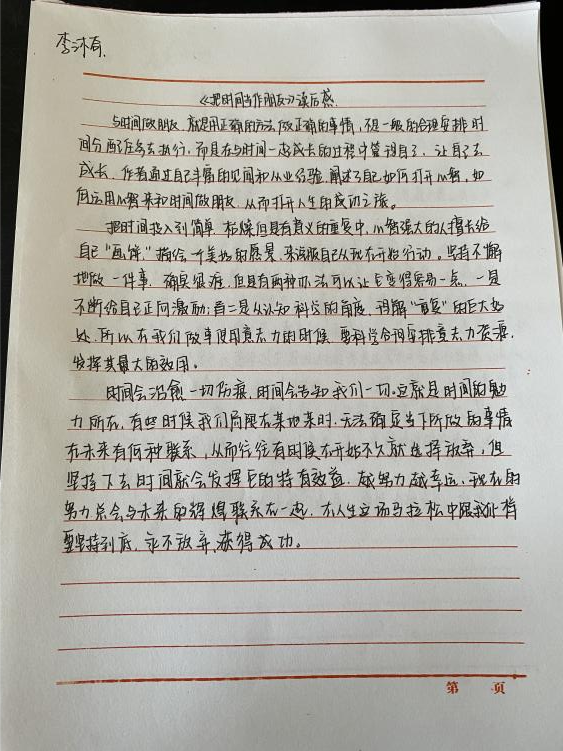 李沐育
《把时间当作朋友》读后感
与时间做朋友，就是用正确的方法做正确的事情，不是一般的合理安排时
间分配任务去执行，而是在与时间一起成长的过程中管理自己，让自己去
成长。作者通过自己丰富的见闻和从业经验，阐述了自己如何打开心智，如
何运用心智来和时间做朋友，从而打开人生的成功之旅。
把时间投入到简单、枯燥但具有意义的重复中，心智强大的人擅长给
自己"画饼"描绘一个美好的愿景，来说服自己从现在开始行动。坚持不懈
地做一件事，确实很难，但是有两种办法可以让它变得容易一点，一是
不断给自己正向激励；音二是从认知科学的角度，理解"重复"的巨大好
处，所以在我们做事使用意志力的时候，要科学合理安排意志力资源，
发挥其最大的效用。
时间会治愈一切伤痕，时间会告知我们一切。这就是时间的魅
力所在，有些时候我们局限在某地来时，无法确定当下所做的事情
在未来有何种联系，从而往往有时候在开始不久就选择放弃，但
坚持下去时间就会发挥它的特有效益，越努力越幸运，现在的
努力总会与未来的辉煌联系在一起，在人生这场马拉松中
要坚持到底，永不放弃，获得成功。
第 页